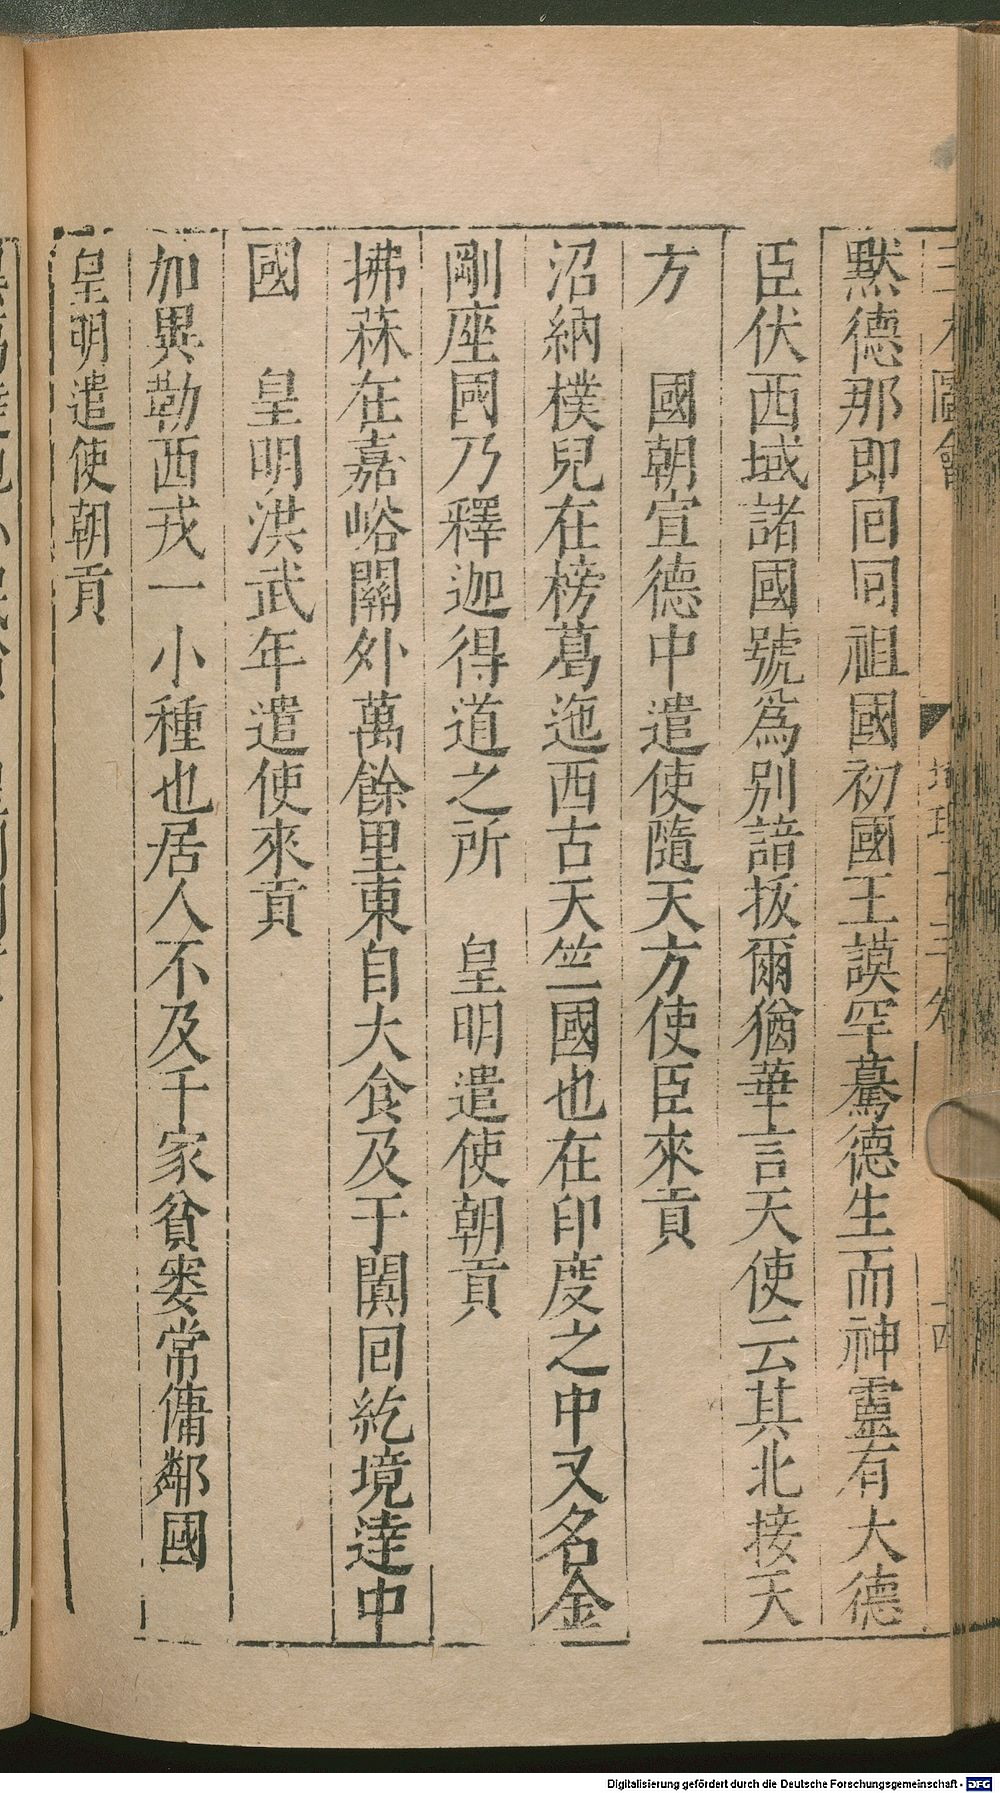 三才圖會
默德那即回回祖國初國王謨罕驀德生而神靈有大德
臣伏西域諸國號爲別諳拔爾猶華言天使云其北接天
方　國朝宣德中遣使隨天方使臣來貢
沼納樸兒在榜葛迤西古天竺國也在印度之中又名金
剛座國乃釋迦得道之所　皇明遣使朝貢
拂菻在嘉峪關外萬餘里東自大食及于闐回紇境達中
國　皇明洪武年遣使來貢
加異勒西戎一小種也居人不及千家貧窭常傭鄰國
皇明遣使朝貢
Digitalisierung gefördert durch die Deutsche Forschungsgemeinschaft - DFG